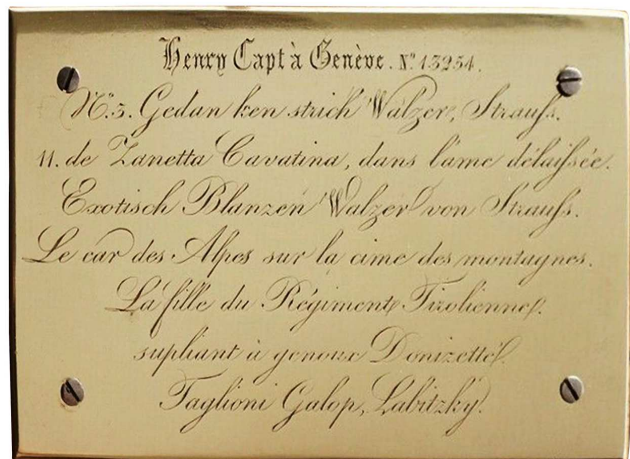 Henry Capt à Genève. Nº 13254.
Nº.5. Gedan ken strich Walzer, Strauſs.
11. de Zanetta Cavatina, dans l'ame délaiſsée.
Exotisch Blanzen Walzer von Strauſs.
Le car des Alpes sur la cime des montagnes.
La fille du Régiment Tirolienne.
supliant à genoux Donizetté.
Taglioni Galop, Labitzky.